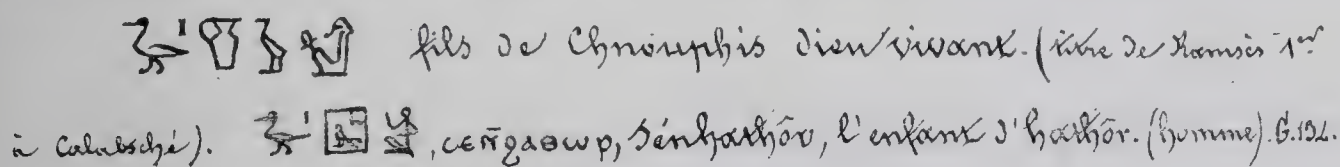 fils de Chnouphis dieu vivant. (titre de Ramsès 1er
à Calabsché). ⲥⲉⲛ̄ϩⲁⲑⲱⲣ, Sénhathôr, l'enfant d'hathôr. (homme). G.